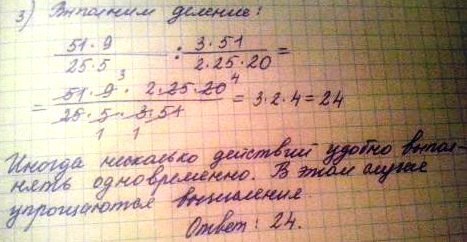 3) Выполним деление:
51·9 / 25·5 : 3·51 / 2·25·20 =
= 51·9³·2·25·20⁴ / 25·5·3·51 = 3·2·4=24
1 1
Иногда несколько действий удобно выпол-
нять одновременно. В этом случае
упрощаются вычисления.
Ответ: 24.